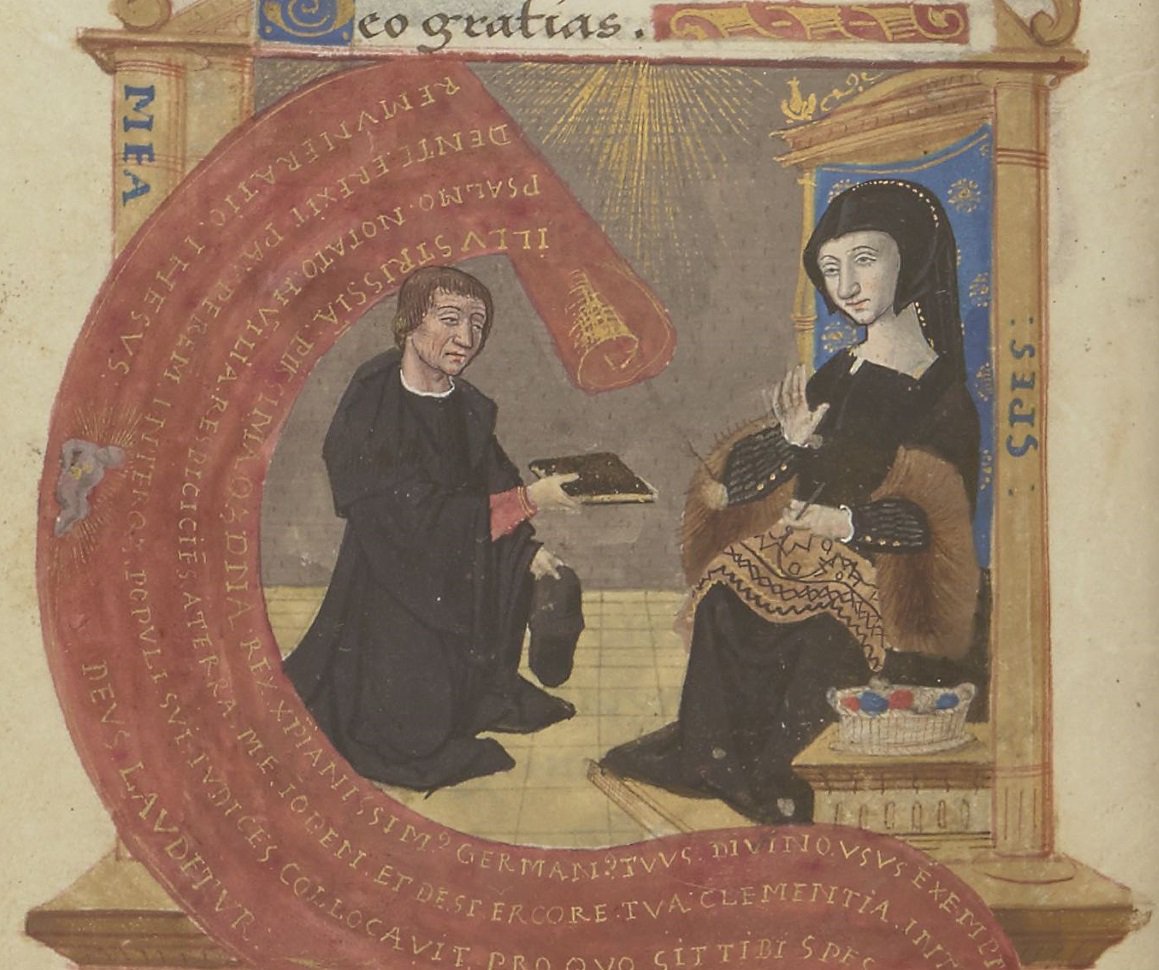 Deo gratias.
MEA
:SPES:
ILLVSTRISSIA. PIISIMAQꝫ DNIA REX XPIANISSIMꝰ GERMANꝰ TVVS. DIVINO. VSVS EXEMP
PSALMO. NOTATO. HVMILIA RESPICIĒS ATERRA ME. IOHEN. ET DESTERCORE. TVA CLEMENTIA. INIT
DENTE. EREXIT PAVPEREM INTERQꝫ POPVLI SVI. IVDICES COLLOCAVIT. PRO QVO SIT TIBI SPES
REMVNERATIO. IHESVS. DEVS LAVDETVR.